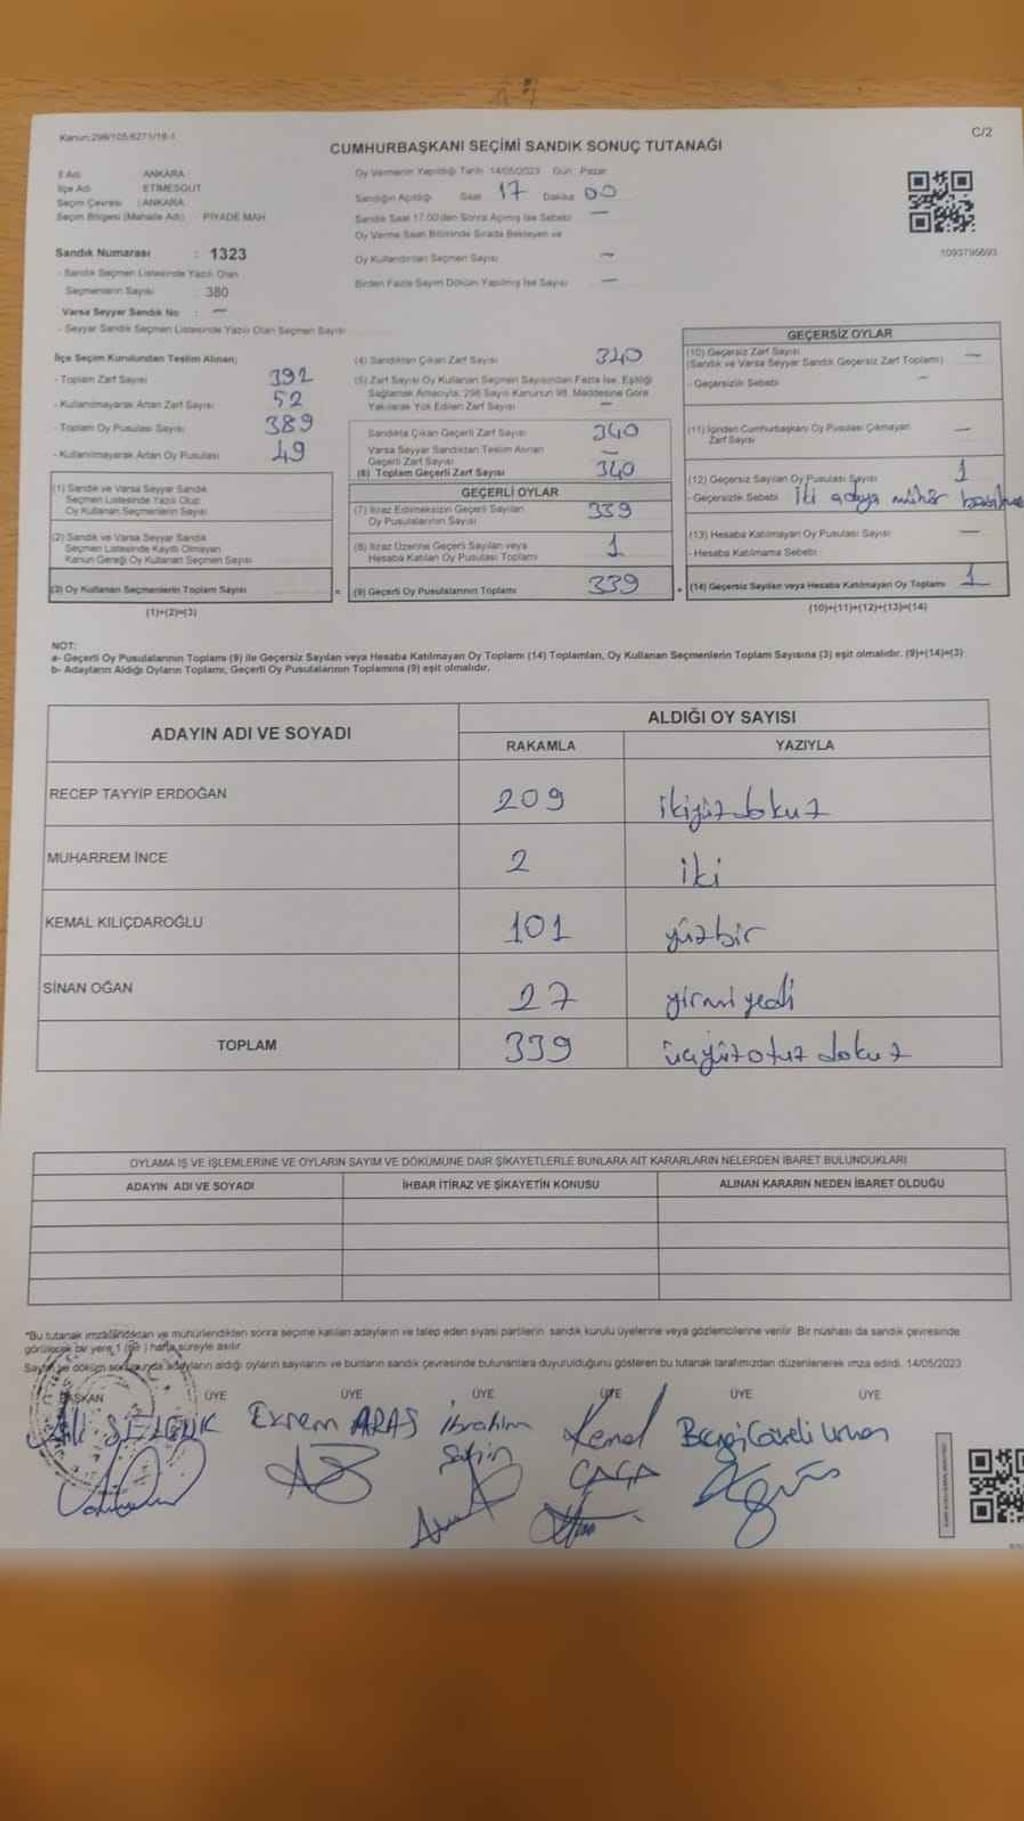 Kanun:298/105;6271/18-1
C/2
CUMHURBAŞKANI SEÇİMİ SANDIK SONUÇ TUTANAĞI
İl Adı ANKARA
İlçe Adı ETİMESGUT
Seçim Çevresi : ANKARA
Seçim Bölgesi (Mahalle Adı) PİYADE MAH
Sandık Numarası : 1323
- Sandık Seçmen Listesinde Yazılı Olan
Seçmenlerin Sayısı : 380
Varsa Seyyar Sandık No : —
- Seyyar Sandık Seçmen Listesinde Yazılı Olan Seçmen Sayısı
Oy Vermenin Yapıldığı Tarih 14/05/2023 Gün Pazar
Sandığın Açıldığı Saat 17 Dakika 00
Sandık Saat 17.00'den Sonra Açılmış İse Sebebi —
Oy Verme Saati Bitiminde Sırada Bekleyen ve
Oy Kullandırılan Seçmen Sayısı —
Birden Fazla Sayım Döküm Yapılmış İse Sayısı —
1093795693
İlçe Seçim Kurulundan Teslim Alınan;
- Toplam Zarf Sayısı 392
- Kullanılmayarak Artan Zarf Sayısı 52
- Toplam Oy Pusulası Sayısı 389
- Kullanılmayarak Artan Oy Pusulası 49
(1) Sandık ve Varsa Seyyar Sandık
Seçmen Listesinde Yazılı Olup
Oy Kullanan Seçmenlerin Sayısı
(2) Sandık ve Varsa Seyyar Sandık
Seçmen Listesinde Kayıtlı Olmayan
Kanun Gereği Oy Kullanan Seçmen Sayısı
(3) Oy Kullanan Seçmenlerin Toplam Sayısı
(1)+(2)=(3)
(4) Sandıktan Çıkan Zarf Sayısı 340
(5) Zarf Sayısı Oy Kullanan Seçmen Sayısından Fazla İse, Eşitliği
Sağlamak Amacıyla, 298 Sayılı Kanunun 98. Maddesine Göre
Yakılarak Yok Edilen Zarf Sayısı —
Sandıkta Çıkan Geçerli Zarf Sayısı 340
Varsa Seyyar Sandıktan Teslim Alınan
Geçerli Zarf Sayısı —
(6) Toplam Geçerli Zarf Sayısı 340
GEÇERLİ OYLAR
(7) İtiraz Edilmeksizin Geçerli Sayılan
Oy Pusulalarının Sayısı 339
(8) İtiraz Üzerine Geçerli Sayılan veya
Hesaba Katılan Oy Pusulası Toplamı 1
= (9) Geçerli Oy Pusulalarının Toplamı 339
GEÇERSİZ OYLAR
(10) Geçersiz Zarf Sayısı
(Sandık ve Varsa Seyyar Sandık Geçersiz Zarf Toplamı) —
- Geçersizlik Sebebi —
(11) İçinden Cumhurbaşkanı Oy Pusulası Çıkmayan
Zarf Sayısı —
(12) Geçersiz Sayılan Oy Pusulası Sayısı 1
- Geçersizlik Sebebi iki adaya mühür
(13) Hesaba Katılmayan Oy Pusulası Sayısı —
- Hesaba Katılmama Sebebi
+ (14) Geçersiz Sayılan veya Hesaba Katılmayan Oy Toplamı 1
(10)+(11)+(12)+(13)=(14)
NOT:
a- Geçerli Oy Pusulalarının Toplamı (9) ile Geçersiz Sayılan veya Hesaba Katılmayan Oy Toplamı (14) Toplamları, Oy Kullanan Seçmenlerin Toplam Sayısına (3) eşit olmalıdır. (9)+(14)=(3)
b- Adayların Aldığı Oyların Toplamı, Geçerli Oy Pusulalarının Toplamına (9) eşit olmalıdır.
ADAYIN ADI VE SOYADI
ALDIĞI OY SAYISI
RAKAMLA YAZIYLA
RECEP TAYYİP ERDOĞAN 209 ikiyüzdokuz
MUHARREM İNCE 2 iki
KEMAL KILIÇDAROĞLU 101 yüzbir
SİNAN OĞAN 27 yirmiyedi
TOPLAM 339 üçyüzotuz dokuz
OYLAMA İŞ VE İŞLEMLERİNE VE OYLARIN SAYIM VE DÖKÜMÜNE DAİR ŞİKAYETLERLE BUNLARA AİT KARARLARIN NELERDEN İBARET BULUNDUKLARI
ADAYIN ADI VE SOYADI İHBAR İTİRAZ VE ŞİKAYETİN KONUSU ALINAN KARARIN NEDEN İBARET OLDUĞU
*Bu tutanak imzalandıktan ve mühürlendikten sonra seçime katılan adayların ve talep eden siyasi partilerin sandık kurulu üyelerine veya gözlemcilerine verilir. Bir nüshası da sandık çevresinde
görülecek bir yere 1 (bir) hafta süreyle asılır.
Sayım ve döküm sonucunda adayların aldığı oyların sayılarını ve bunların sandık çevresinde bulunanlara duyurulduğunu gösteren bu tutanak tarafımızdan düzenlenerek imza edildi. 14/05/2023
BAŞKAN ÜYE ÜYE ÜYE ÜYE ÜYE ÜYE
Ali SELÇUK Ekrem ARAS İbrahim Kemal
Şahin ÇAÇA